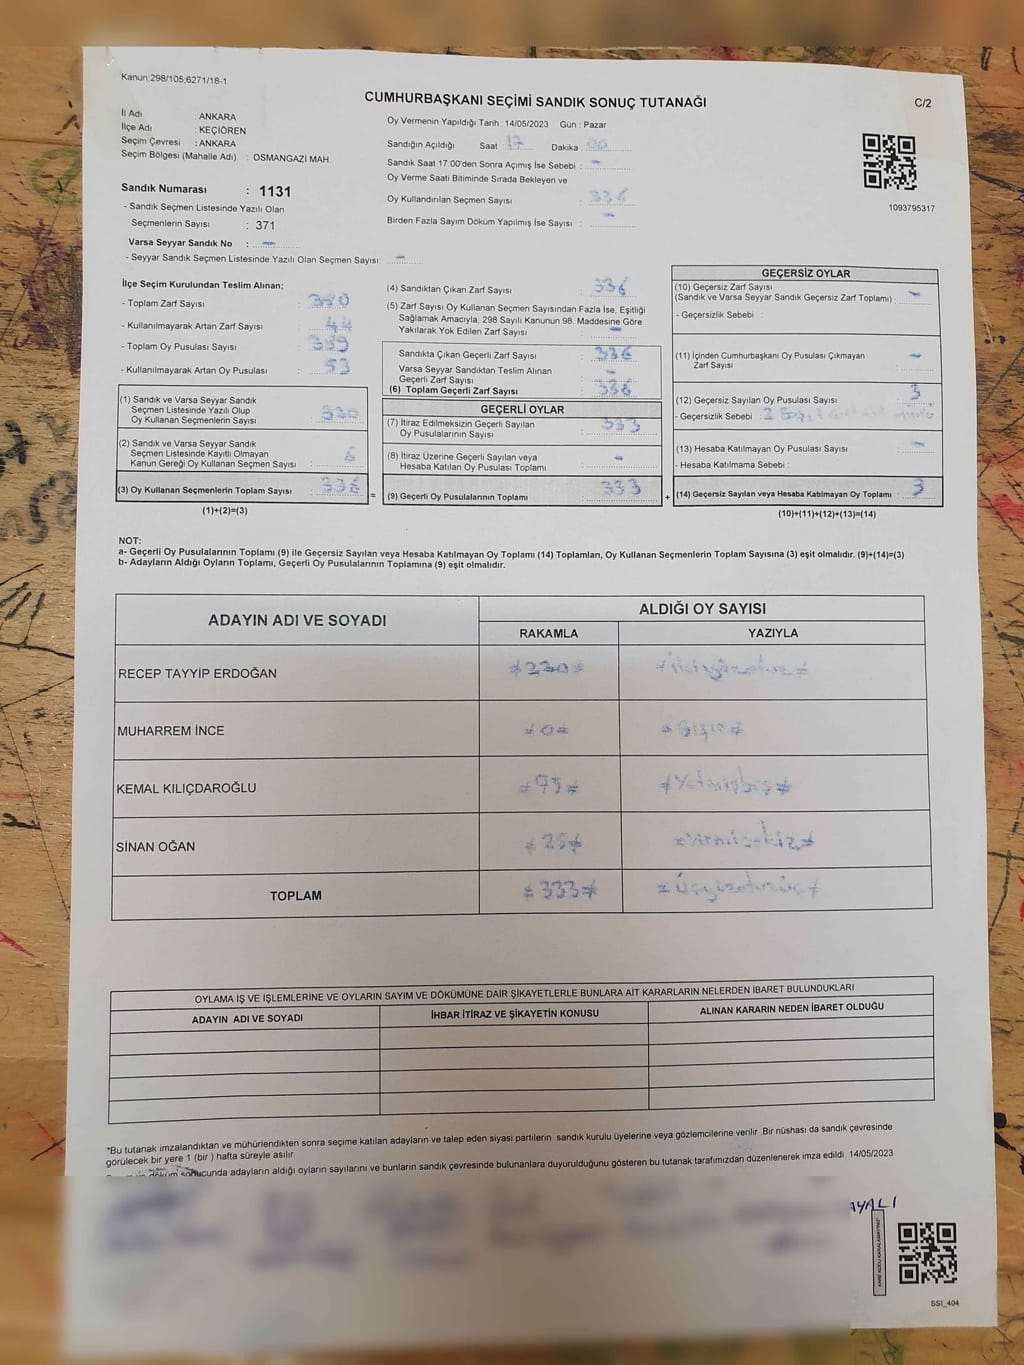 Kanun;298/105;6271/18-1
CUMHURBAŞKANI SEÇİMİ SANDIK SONUÇ TUTANAĞI
C/2
İl Adı : ANKARA
İlçe Adı : KEÇİÖREN
Seçim Çevresi : ANKARA
Seçim Bölgesi (Mahalle Adı) : OSMANGAZİ MAH.
Sandık Numarası : 1131
- Sandık Seçmen Listesinde Yazılı Olan
Seçmenlerin Sayısı : 371
Varsa Seyyar Sandık No : -
- Seyyar Sandık Seçmen Listesinde Yazılı Olan Seçmen Sayısı: -
Oy Vermenin Yapıldığı Tarih :14/05/2023 Gün : Pazar
Sandığın Açıldığı Saat : 17 Dakika : 00
Sandık Saat 17:00'den Sonra Açımış İse Sebebi : -
Oy Verme Saati Bitiminde Sırada Bekleyen ve
Oy Kullandırılan Seçmen Sayısı : 336
Birden Fazla Sayım Döküm Yapılmış İse Sayısı : -
1093795317
İlçe Seçim Kurulundan Teslim Alınan;
- Toplam Zarf Sayısı : 380
- Kullanılmayarak Artan Zarf Sayısı : 44
- Toplam Oy Pusulası Sayısı : 389
- Kullanılmayarak Artan Oy Pusulası : 53
(1) Sandık ve Varsa Seyyar Sandık
Seçmen Listesinde Yazılı Olup
Oy Kullanan Seçmenlerin Sayısı : 330
(2) Sandık ve Varsa Seyyar Sandık
Seçmen Listesinde Kayıtlı Olmayan
Kanun Gereği Oy Kullanan Seçmen Sayısı : 6
(3) Oy Kullanan Seçmenlerin Toplam Sayısı : 336
(1)+(2)=(3)
(4) Sandıktan Çıkan Zarf Sayısı : 336
(5) Zarf Sayısı Oy Kullanan Seçmen Sayısından Fazla İse, Eşitliği
Sağlamak Amacıyla, 298 Sayılı Kanunun 98. Maddesine Göre
Yakılarak Yok Edilen Zarf Sayısı : -
Sandıkta Çıkan Geçerli Zarf Sayısı : 336
Varsa Seyyar Sandıktan Teslim Alınan
Geçerli Zarf Sayısı : -
(6) Toplam Geçerli Zarf Sayısı : 336
GEÇERLİ OYLAR
(7) İtiraz Edilmeksizin Geçerli Sayılan
Oy Pusulalarının Sayısı : 333
(8) İtiraz Üzerine Geçerli Sayılan veya
Hesaba Katılan Oy Pusulası Toplamı : -
= (9) Geçerli Oy Pusulalarının Toplamı : 333
GEÇERSİZ OYLAR
(10) Geçersiz Zarf Sayısı
(Sandık ve Varsa Seyyar Sandık Geçersiz Zarf Toplamı) : -
- Geçersizlik Sebebi :
(11) İçinden Cumhurbaşkanı Oy Pusulası Çıkmayan
Zarf Sayısı : -
(12) Geçersiz Sayılan Oy Pusulası Sayısı : 3
- Geçersizlik Sebebi : 2
(13) Hesaba Katılmayan Oy Pusulası Sayısı : -
- Hesaba Katılmama Sebebi :
+ (14) Geçersiz Sayılan veya Hesaba Katılmayan Oy Toplamı : 3
(10)+(11)+(12)+(13)=(14)
NOT:
a- Geçerli Oy Pusulalarının Toplamı (9) ile Geçersiz Sayılan veya Hesaba Katılmayan Oy Toplamı (14) Toplamları, Oy Kullanan Seçmenlerin Toplam Sayısına (3) eşit olmalıdır. (9)+(14)=(3)
b- Adayların Aldığı Oyların Toplamı, Geçerli Oy Pusulalarının Toplamına (9) eşit olmalıdır.
ADAYIN ADI VE SOYADI
ALDIĞI OY SAYISI
RAKAMLA YAZIYLA
RECEP TAYYİP ERDOĞAN ≠230≠ ≠ikiyüzotuz≠
MUHARREM İNCE ≠0≠
KEMAL KILIÇDAROĞLU ≠75≠ ≠Yetmişbeş≠
SİNAN OĞAN ≠28≠ ≠Yirmisekiz≠
TOPLAM ≠333≠
OYLAMA İŞ VE İŞLEMLERİNE VE OYLARIN SAYIM VE DÖKÜMÜNE DAİR ŞİKAYETLERLE BUNLARA AİT KARARLARIN NELERDEN İBARET BULUNDUKLARI
ADAYIN ADI VE SOYADI İHBAR İTİRAZ VE ŞİKAYETİN KONUSU ALINAN KARARIN NEDEN İBARET OLDUĞU
*Bu tutanak imzalandıktan ve mühürlendikten sonra seçime katılan adayların ve talep eden siyası partilerin sandık kurulu üyelerine veya gözlemcilerine verilir .Bir nüshası da sandık çevresinde
görülecek bir yere 1 (bir ) hafta süreyle asılır.
döküm sonucunda adayların aldığı oyların sayılarını ve bunların sandık çevresinde bulunanlara duyurulduğunu gösteren bu tutanak tarafımızdan düzenlenerek imza edildi. 14/05/2023
AYALI
SSİ_404